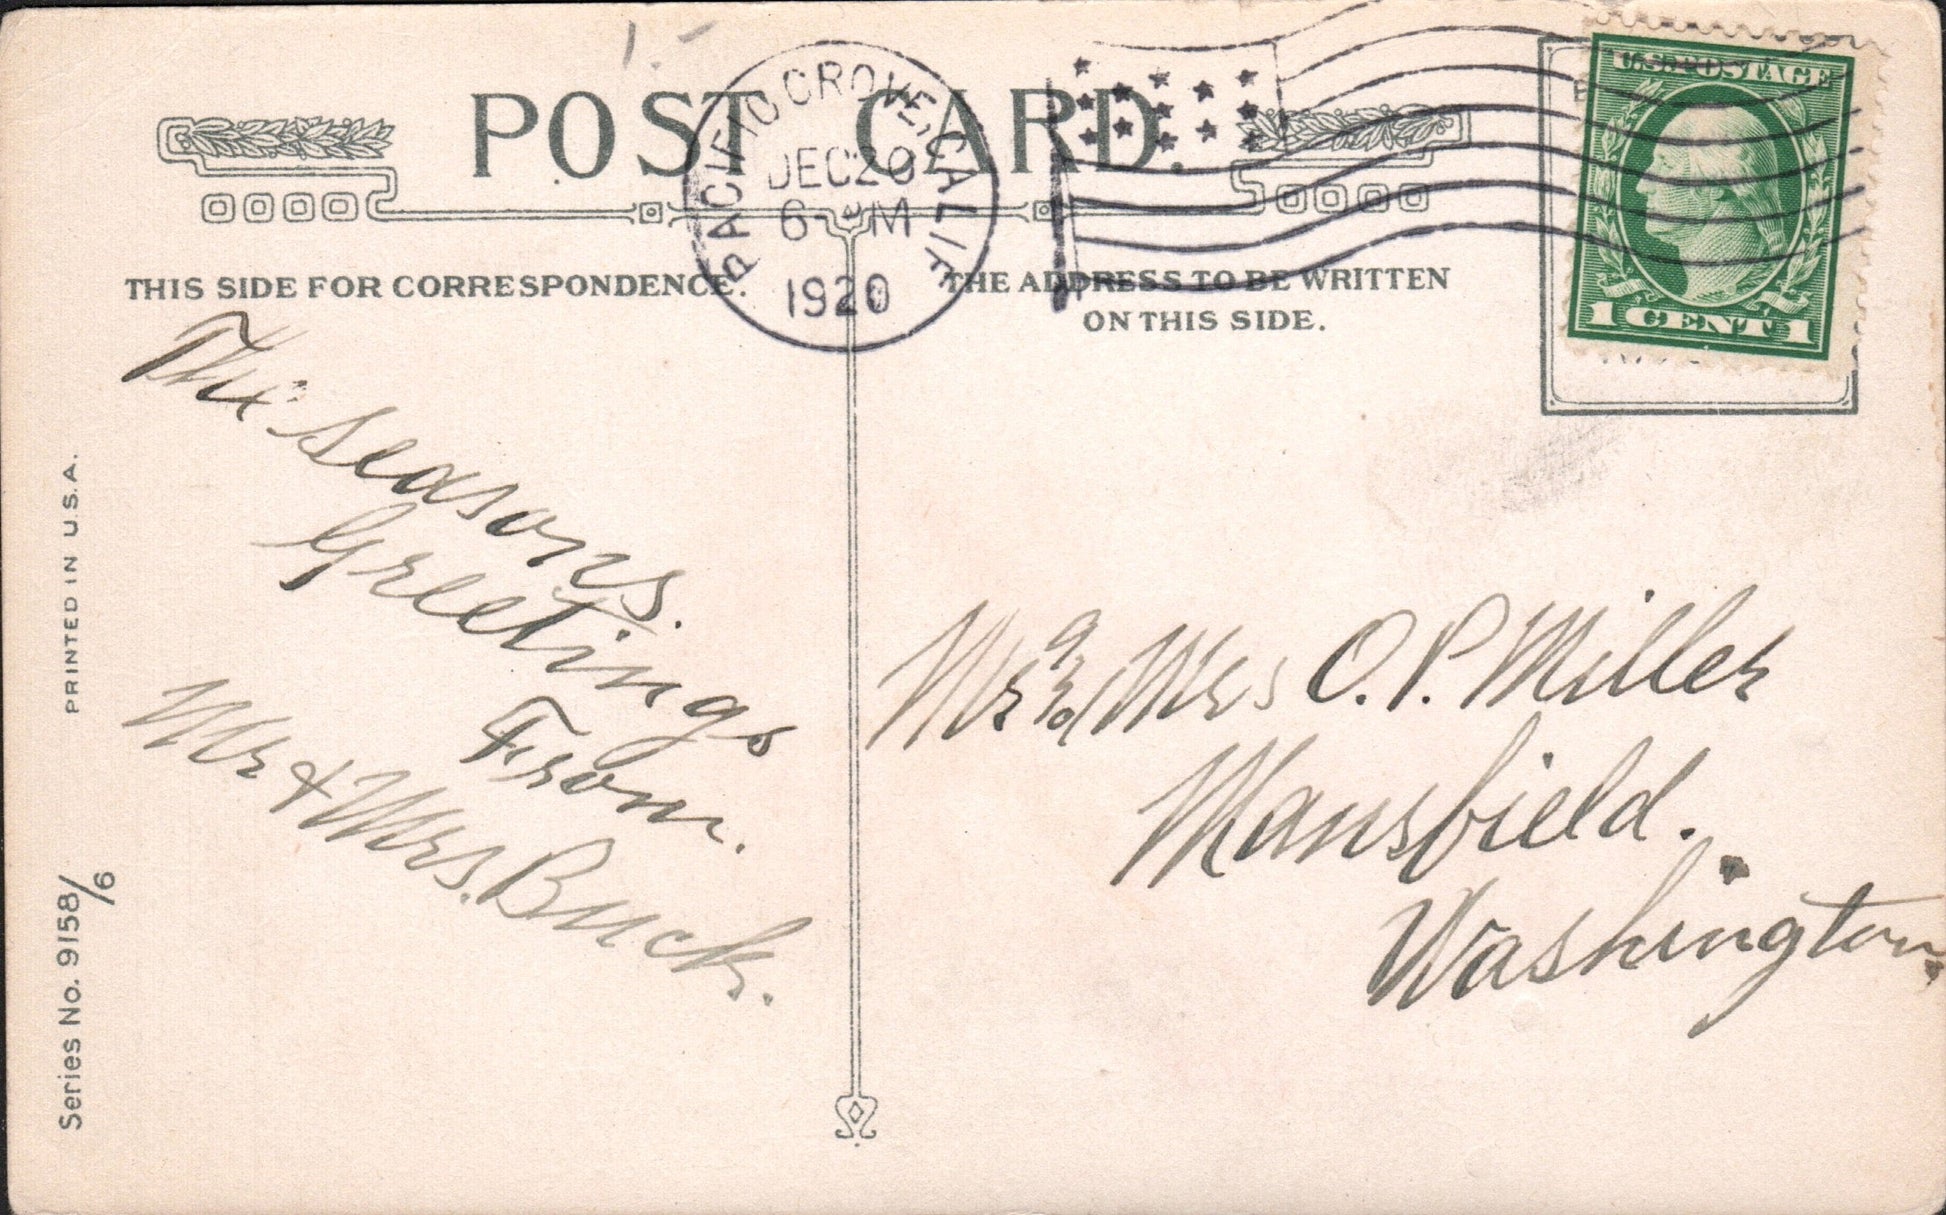 POST CARD.
PACIFIC GROVE, CALIF.
DEC 20
6 - M
1920
U.S. POSTAGE
1 CENT 1
THIS SIDE FOR CORRESPONDENCE.
THE ADDRESS TO BE WRITTEN
ON THIS SIDE.
The seasons.
Greetings
From.
Mr & Mrs. Buck.
Mr and Mrs O. P. Miller
Mansfield.
Washington.
PRINTED IN U.S.A.
Series No. 9158/6